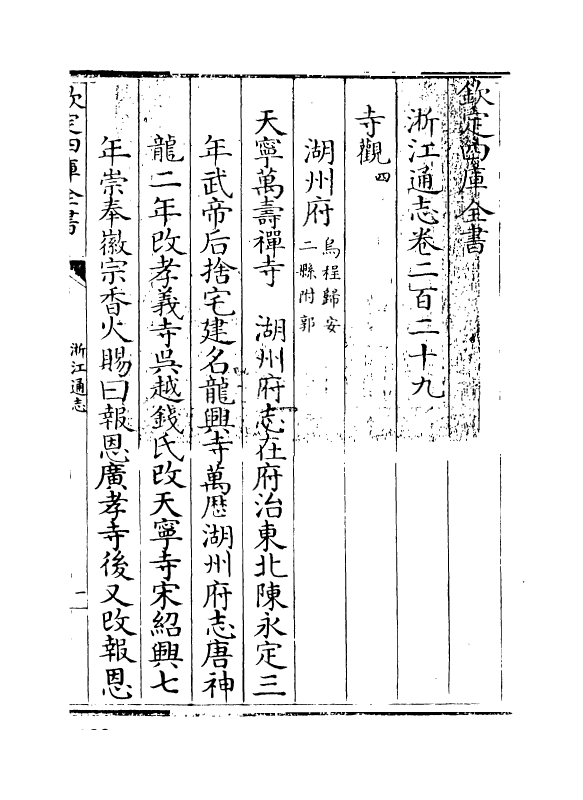 欽定四庫全書
浙江通志卷二百二十九
寺觀四
湖州府烏程歸安
二縣附郭
天寧萬壽禪寺　湖州府志在府治東北陳永定三
年武帝后捨宅建名龍興寺萬厯湖州府志唐神
龍二年改孝義寺吳越錢氏改天寧寺宋紹興七
年崇奉徽宗香火賜曰報恩廣孝寺後又改報恩
欽定四庫全書
浙江通志